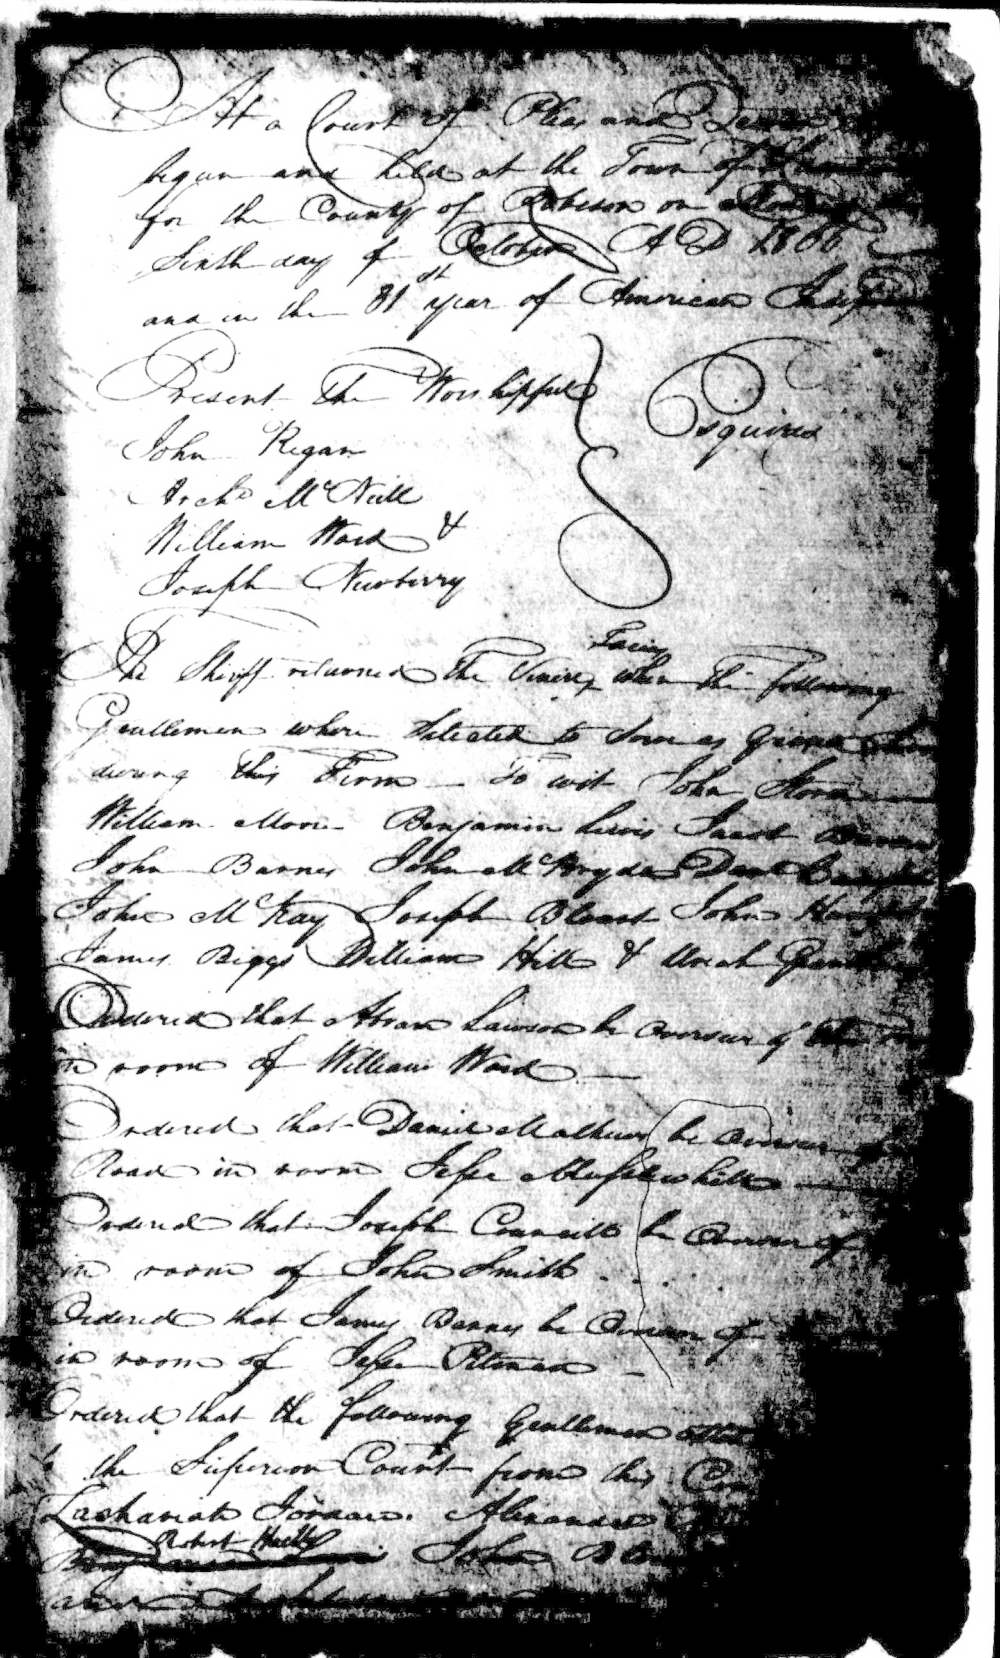 At a Court of Pleas and
began and held at the Town of
for the County of Robeson on Monday the
Sixth day of October A D 1806
and in the 31st year of American
Present The Worshipful
Esquires
John Regan
Archd McNeill
William Ward &
Joseph Newberry
Facias
The Sheriff returned The Venire when The following
Gentlemen where Selected to Serve as Grand
during This Term – To wit John
William Moore Benjamin Lewis Jacob
John Barnes John McBryde Danl
John McKay Joseph Blount John
James Biggs William Hill &
Ordered that Abram Lawson be overseer of the
in room of William Ward –
Ordered that Daniel Mathews be Overseer of
Road in room Jesse Musselwhite –
Ordered that Joseph Council be Overseer of
in room of John Smith
Ordered that James Barnes be Overseer of
in room of Jesse Pitman –
Ordered that the following Gentlemen
to the Superior Court from this
Zachariah Jordan. Alexander
Robert
John